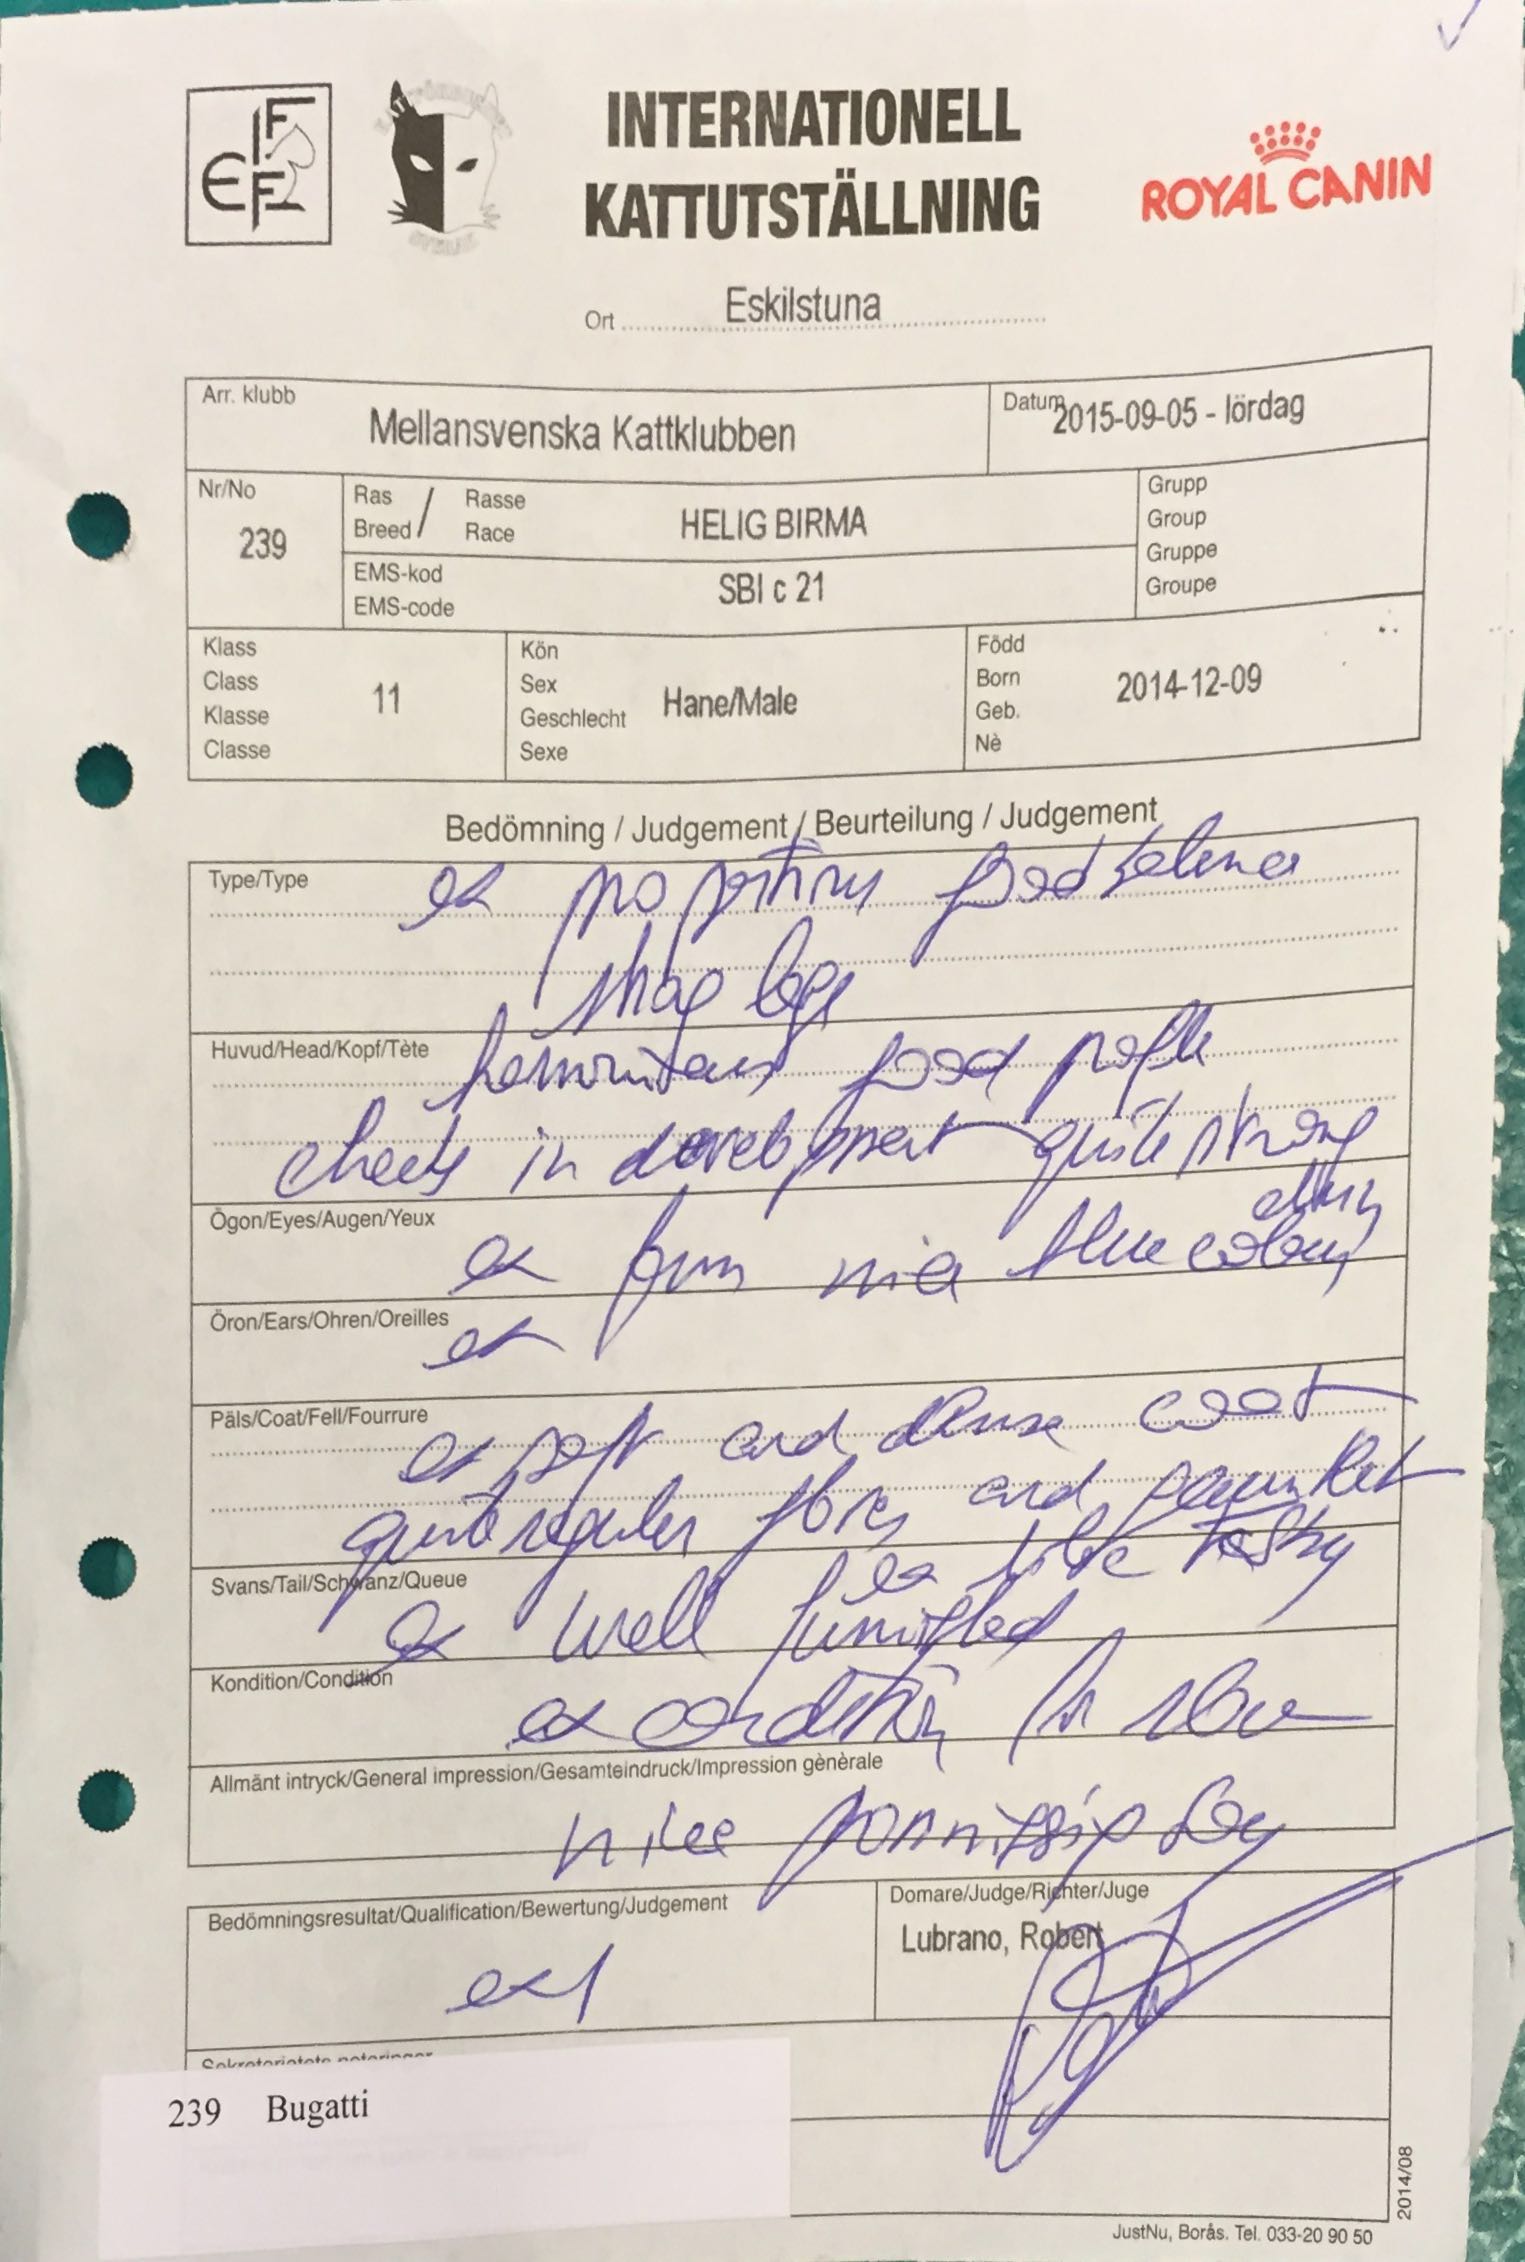 FIFE
INTERNATIONELL
KATTUTSTÄLLNING
ROYAL CANIN
Ort Eskilstuna
Arr. klubb
Mellansvenska Kattklubben
Datum 2015-09-05 - lördag
Nr/No
239
Ras / Rasse
Breed / Race
HELIG BIRMA
EMS-kod
EMS-code
SBI c 21
Grupp
Group
Gruppe
Groupe
Klass
Class
Klasse
Classe
11
Kön
Sex
Geschlecht
Sexe
Hane/Male
Född
Born
Geb.
Nè
2014-12-09
Bedömning / Judgement / Beurteilung / Judgement
Type/Type
ex good
legs
Huvud/Head/Kopf/Tète
good profile
cheeks in development quite strong
chin
Ögon/Eyes/Augen/Yeux
ex form nice blue colour
Öron/Ears/Ohren/Oreilles
ex
Päls/Coat/Fell/Fourrure
ex soft and dense coat
quite regular gloves and gauntlet
Svans/Tail/Schwanz/Queue
ex well furnished
Kondition/Condition
ex condition for show
Allmänt intryck/General impression/Gesamteindruck/Impression gènèrale
nice
Bedömningsresultat/Qualification/Bewertung/Judgement
ex 1
Domare/Judge/Richter/Juge
Lubrano, Robert
239 Bugatti
2014/08
JustNu, Borås. Tel. 033-20 90 50